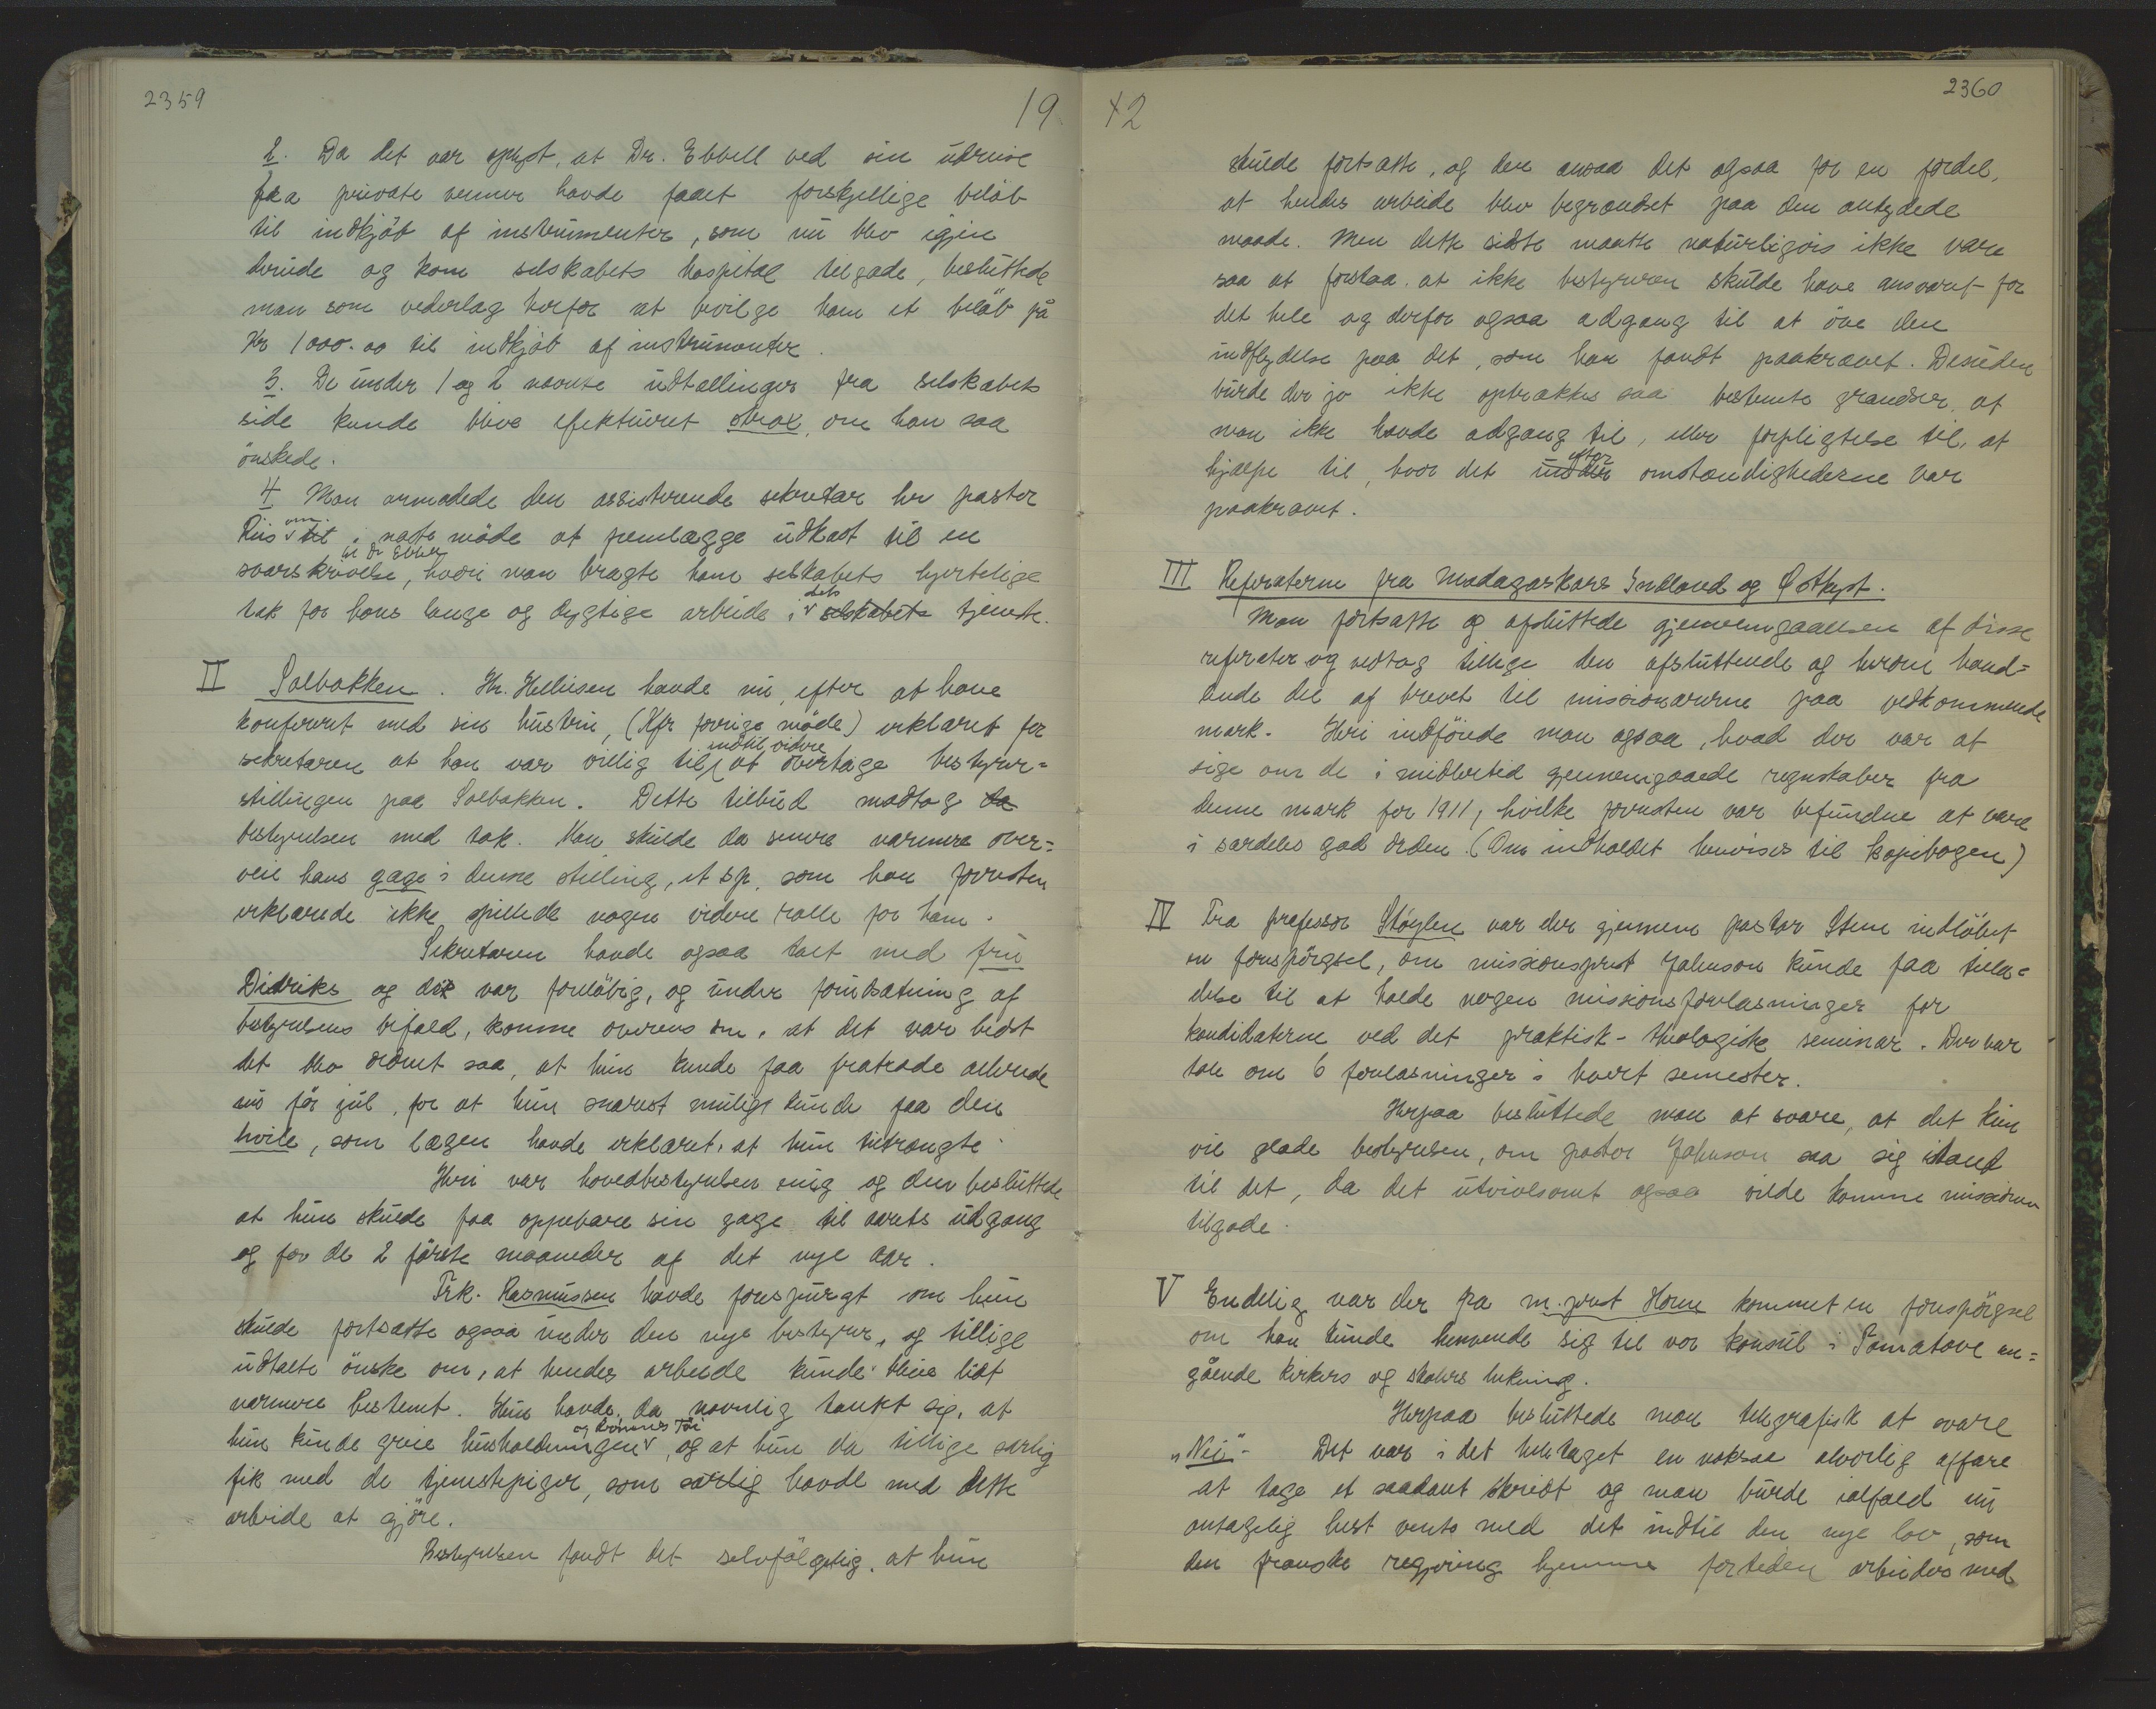 2359
19
2. Da det var oplyst, at Dr. Ebbell ved sin udreise
fra private venner havde faaet forskjellige beløb
til indkjøb af instrumenter, som nu blev igjen
derude og kom selskabets hospital tilgode, besluttede
man som vederlag herfor at bevilge ham et beløb på
Kr 1000.00 til indkjøb af instrumenter.
3. De under 1 og 2 nævnte udtællinger fra selskabets
side kunde blive efektueret strax, om han saa
ønskede.
4 Man anmodede den assisterende sekretær hr pastor
Riis om til i næste møde at fremlægge udkast til en
svarskrivelse, til Dr Ebbell hvori man bragte ham selskabets hjertelige
tak for hans lange og dygtige arbeide i dets selskabets tjeneste.
II Solbakken. Hr. Helliesen havde nu, efter at have
konfereret med sin hustru, (Kfr forrige møde) erklæret for
sekretæren at han var villig til indtil videre at overtage bestyrer=
stillingen paa Solbakken. Dette tilbud modtog da
bestyrelsen med tak. Man skulde da senere nærmere over=
veie hans gage i denne stilling, et sp. som han forresten
erklærede ikke spillede nogen videre rolle for ham.
Sekretæren havde ogsaa talt med fru
Didriks og der var foreløbig, og under forudsætning af
bestyrelsens bifald, komne overens om, at det var bedst
det blev ordnet saa, at hun kunde faa fratræde allerede
nu før jul, for at hun snarest muligt kunde faa den
hvile, som lægen havde erklæret, at hun tiltrængte.
Heri var hovedbestyrelsen enig og den besluttede
at hun skulde faa oppebære sin gage til aarets udgang
og for de 2 første maaneder af det nye aar.
Frk. Rasmussen havde forespurgt om hun
skulde fortsætte ogsaa under den nye bestyrer, og tillige
udtalte ønske om, at hendes arbeide kunde blive lidt
nærmere bestemt. Hun havde da navnlig tænkt sig, at
hun kunde greie husholdningen og Rommes Tøi, og at hun da tillige særlig
fik med de tjenestepiger, som særlig havde med dette
arbeide at gjøre.
Bestyrelsen fandt det selvfølgelig, at hun
12
2360
skulde fortsætte, og den ansaa det ogsaa for en fordel,
at hendes arbeide blev begrændset paa den antydede
maade. Men dette sidste maatte naturligvis ikke være
saa at forstaa, at ikke bestyreren skulde have ansvaret for
det hele og derfor ogsaa adgang til at øve den
indflydelse paa det, som han fandt paakrævet. Desuden
burde der jo ikke optrækkes saa bestemte grændser, at
man ikke havde adgang til, eller forpligtelse til, at
hjælpe til, hvor det under efter omstændighederne var
paakrævet.
III Referaterne fra Madagaskars Indland og Østkyst.
Man fortsatte og afsluttede gjennemgaaelsen af disse
referater og vedtog tillige den afsluttende og herom hand=
lende del af brevet til missionærerne paa vedkommende
mark. Heri indførede man ogsaa, hvad der var at
sige om de i midlertid gjennemgaaede regnskaber fra
denne mark for 1911, hvilke forresten var befundne at være
i særdeles god orden. (Om indholdet henvises til kopibogen)
IV Fra professor Støylen var der gjennem pastor Steen indløbet
en forespørgsel, om missionsprest Johnson kunde faa tilla=
delse til at holde nogen missionsforelæsninger for
kandidaterne ved det praktisk-theologiske seminar. Der var
tale om 6 forelæsninger i hvert semester.
Herpaa besluttede man at svare, at det kun
vil glæde bestyrelsen, om pastor Johnson saa sig istand
til det, da det utvivlsomt ogsaa vilde komme missionen
tilgode.
V Endelig var der fra m.prest Horne kommet en forespørgsel
om han kunde henvende sig til vor konsul i Tamatave an=
gående kirkers og skolers lukning.
Herpaa besluttede man telegrafisk at svare
"Nei". Det var i det heletaget en noksaa alvorlig affære
at tage et saadant skridt og man burde ialfald nu
antagelig helst vente med det indtil den nye lov, som
den franske regjering hjemme fortiden arbeider med